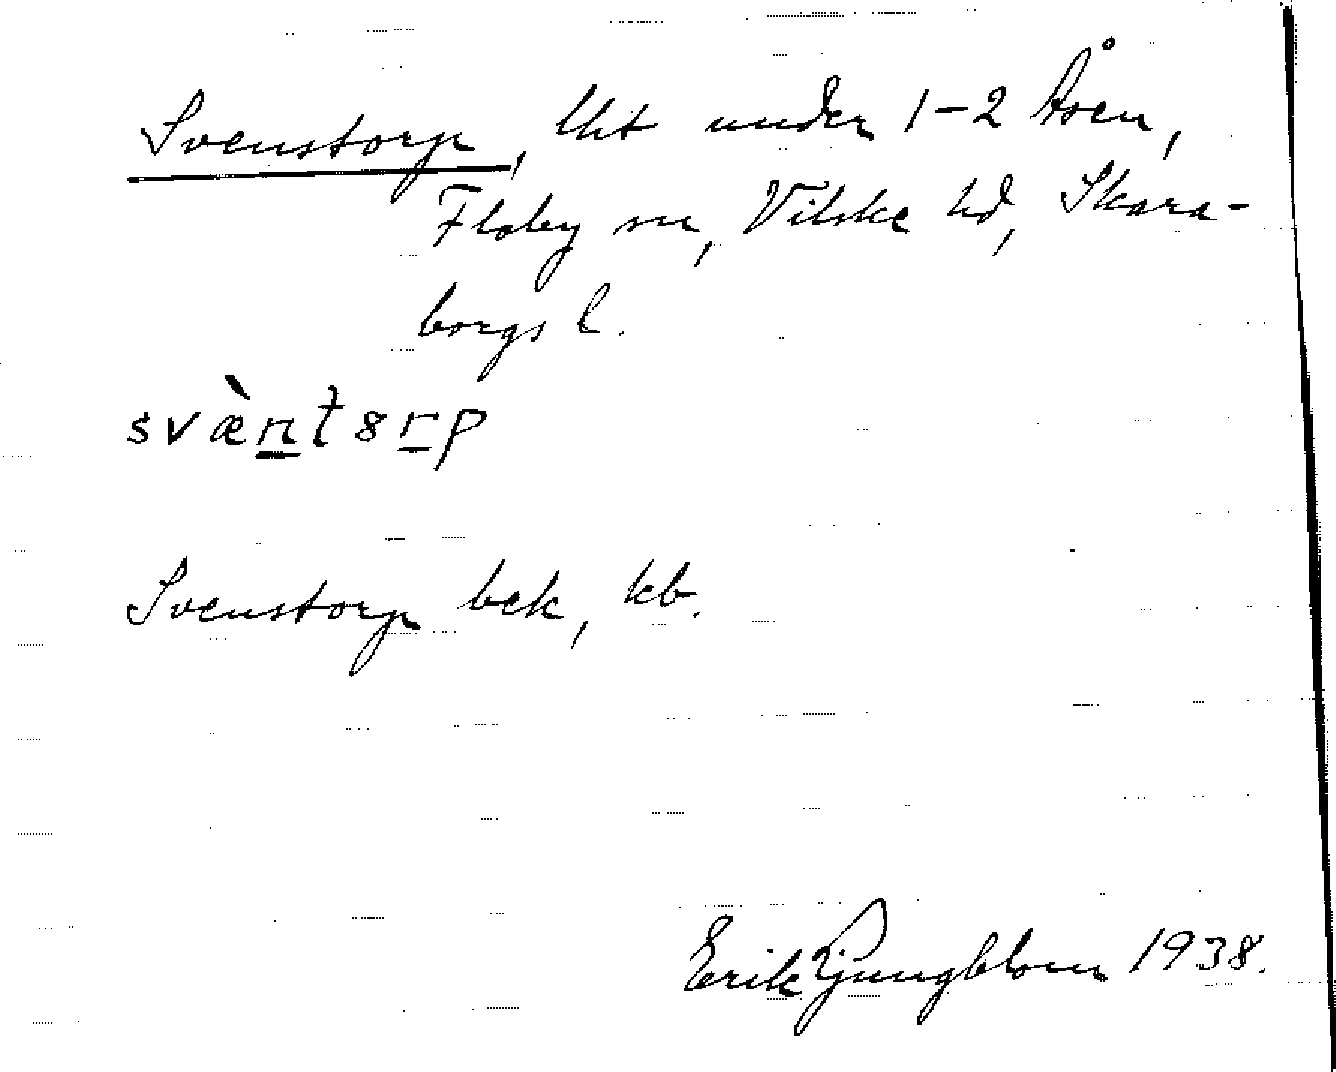 Svenstorp, lht under 1-2 Åsen,
Floby sn, Vilske hd, Skara-
borgs l.
svæ̀n̲tɞr̲p
Svenstorp bek, kb.
Erik Ljungblom 1938.